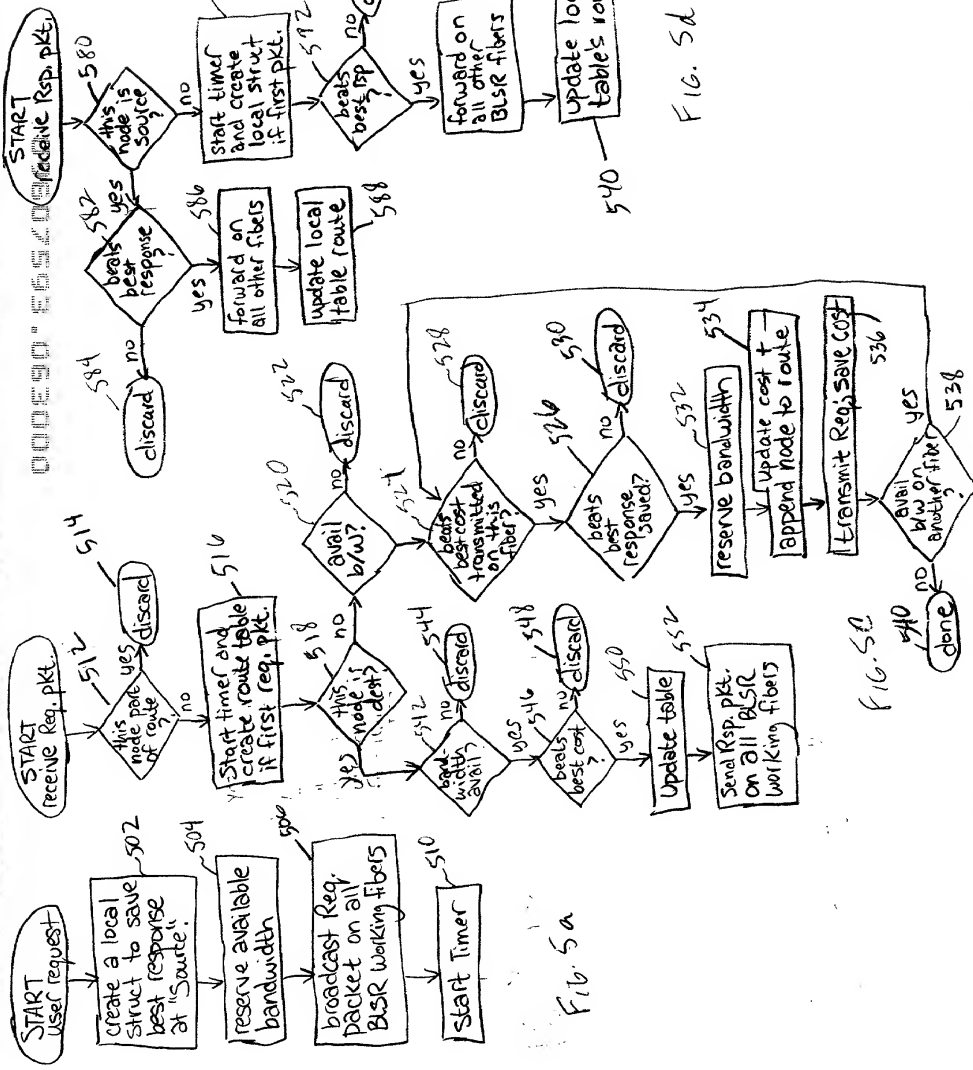 START
user request
create a local
struct to save
best response
at "Source".
502
reserve available
bandwidth
504
broadcast Req.
packet on all
BLSR Working fibers
506
Start Timer
510
FIG. 5a
START
receive Req. pkt.
this
node part
of route
?
512
yes
discard
514
no
Start timer and
create route table
if first req. pkt.
516
this
node is
dest?
518
yes
no
band-
width
avail?
542
no
discard
544
yes
beats
best cost
?
546
no
discard
548
yes
Update table
550
Send Rsp. pkt.
on all BLSR
working fibers
552
avail
b/w?
520
no
discard
522
beats
best cost
transmitted
on this
fiber?
524
no
discard
528
yes
beats
best
response
saved?
526
no
discard
530
yes
reserve bandwidth
532
update cost +
append node to route
534
transmit Req; save cost
536
avail
b/w on
another fiber
?
538
yes
no
540
done
FIG. 5c
START
receive Rsp. pkt.
this
node is
source
?
580
yes
no
beats
best
response
?
582
no
discard
584
yes
forward on
all other fibers
586
update local
table route
588
start timer
and create
local struct
if first pkt.
beats
best rsp
?
592
no
yes
forward on
all other
BLSR fibers
update
table's
540
FIG. 5d